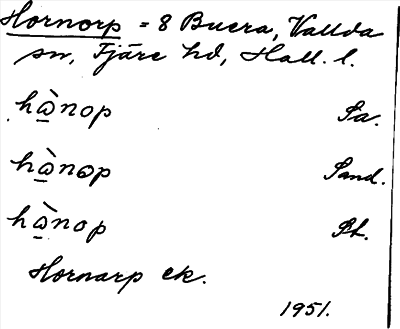 Hornorp = 8 Buera, Vallda
sn, Fjäre hd, Hall. l.
hὼ̲nop Sa.
hὼ̲nɷp Sand.
hὼ̲nop St.
Hornarp ek.
1951.